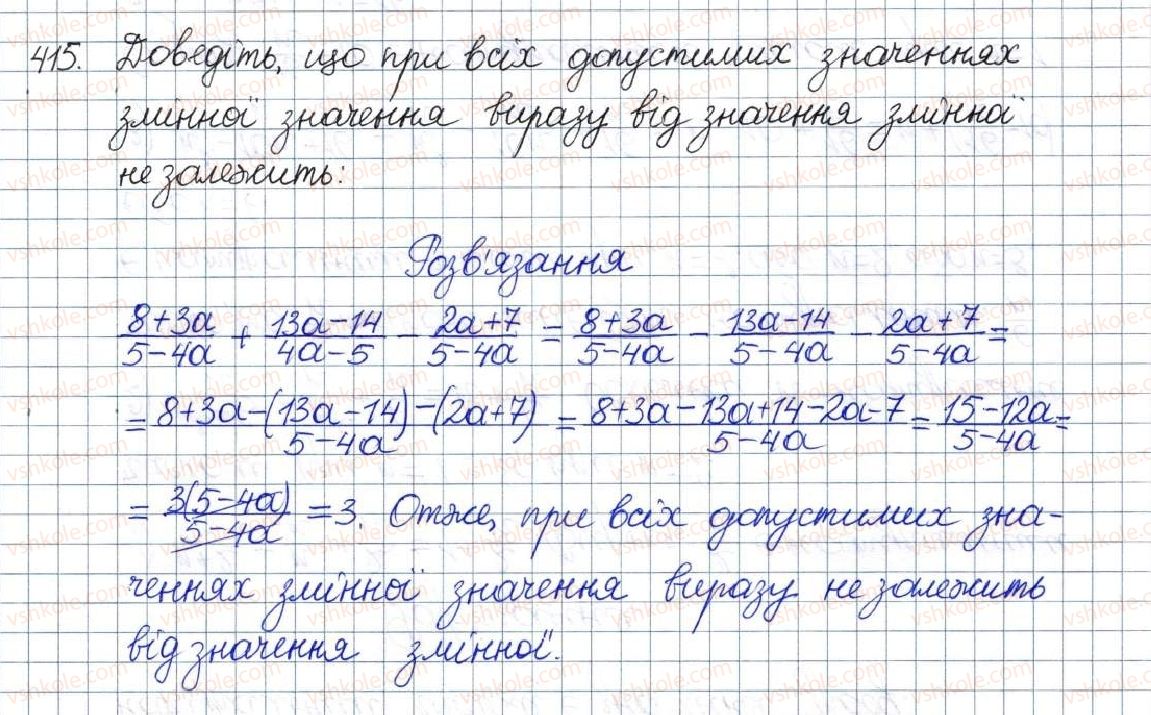 415. Доведіть, що при всіх допустимих значеннях
змінної значення виразу від значення змінної
не залежить:
Розв'язання
(8+3a)/(5-4a) + (13a-14)/(4a-5) - (2a+7)/(5-4a) = (8+3a)/(5-4a) - (13a-14)/(5-4a) - (2a+7)/(5-4a) =
= (8+3a-(13a-14)-(2a+7))/(5-4a) = (8+3a-13a+14-2a-7)/(5-4a) = (15-12a)/(5-4a) =
= 3(5-4a)/(5-4a) = 3. Отже, при всіх допустимих зна-
ченнях змінної значення виразу не залежить
від значення змінної.